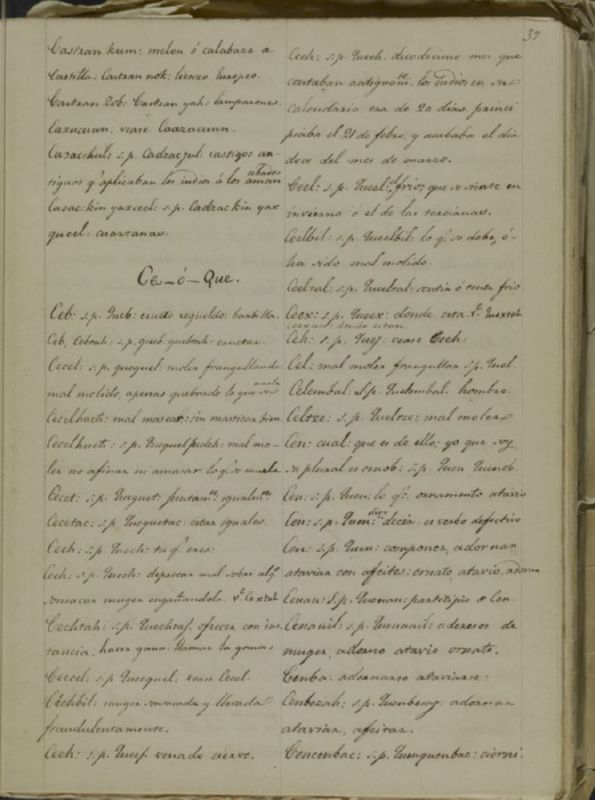 37
Castran kum: melon ó calabaza de
Castilla: Castran nok: lienzo Europeo.
Castran Zob: Castran yah: lamparones.
Cazucuum: vease Caazucuum.
Casachul: s.p. Cadzacjul: castigos an-
tiguos q.e aplicaban los indios á los aman
cebados
Casac-kin yaxceel: s.p. Cadzac kin yax
queel: cuartanas.
Ce - ó - Que.
Ceb: s.p. Queb: eructo regüeldo: barbilla.
Ceb, Cebrah: s.p. queb quebrah: eructar.
Cecel: s.p. quequel: moler frangullando
mal molido, apenas quebrado lo que se
muele
Cecelhach: mal mascar: sin masticar bien.
Cecelhuch: s.p. Quequelhuch: mal mo-
ler no afinar ni amasar lo q.e se muele
Cecet: s.p. Quequet: juntam.te igualm.te
Cecetac: s.p. Quequetac: estar iguales.
Cech: s.p. Quech: tu q.e eres:
Cech: s.p. Quech: mal sobre alg.o
sonsacar muger engañandola. v.e Cextah
Cechtah: s.p. Quechtaj. ofrecer con ins
tancia, hacer gana: llamar la gana
Cercel: s.p. Quequel: vease Cecel.
Cechbil: muger sonsacada y llevada
fraudulentamente.
Ceh: s.p. Quej. venado ciervo.
Ceeh: s.p. Queeh. duodecimo mes que
contaban antiguam.te los indios en su
calendario era de 20 dias, princi
piaba el 21 de febro. y acababa el dia
doce del mes de marzo.
Ceel: s.p. Queel: el frio, que se siente en
invierno ó el de las tercianas.
Ceelbil: s.p. Queelbil: lo q.e se debe, ó
ha sido mal molido.
Ceeltal: s.p. Queeltal: sentir ó tener frio.
Ceex: s.p. Queex: donde esta v.e Quextah
donde estan.
Ceh: s.p. Quej: vease Ceeh.
Cel: mal moler frangullar s.p. Quel.
Celembal: s.p. Quelembal. hombro.
Celtze: s.p. Queltze: mal moler
Cen: cual: que es de ello; yo que soy
su plural es cenob: s.p. Quen Quenob.
Cen: s.p. Quen: lo q.e: ornamento atavio
Cen: s.p. Quen: dice decir. es verbo defectivo
Cen: s.p. Quen: componer, adornar
ataviar con afeites: ornato, atavio, adorno
Cenan: s.p. Quenan: participio de Cen.
Cenanil: s.p. Quenanil: aderezos de
muger, adorno atavio ornato.
Cenba: adornarse ataviarse:
Cenbezah: s.p. Quenbezaj: adornar
ataviar, afeitar.
Cencenbac: s.p. Quenquenbac: cierni-